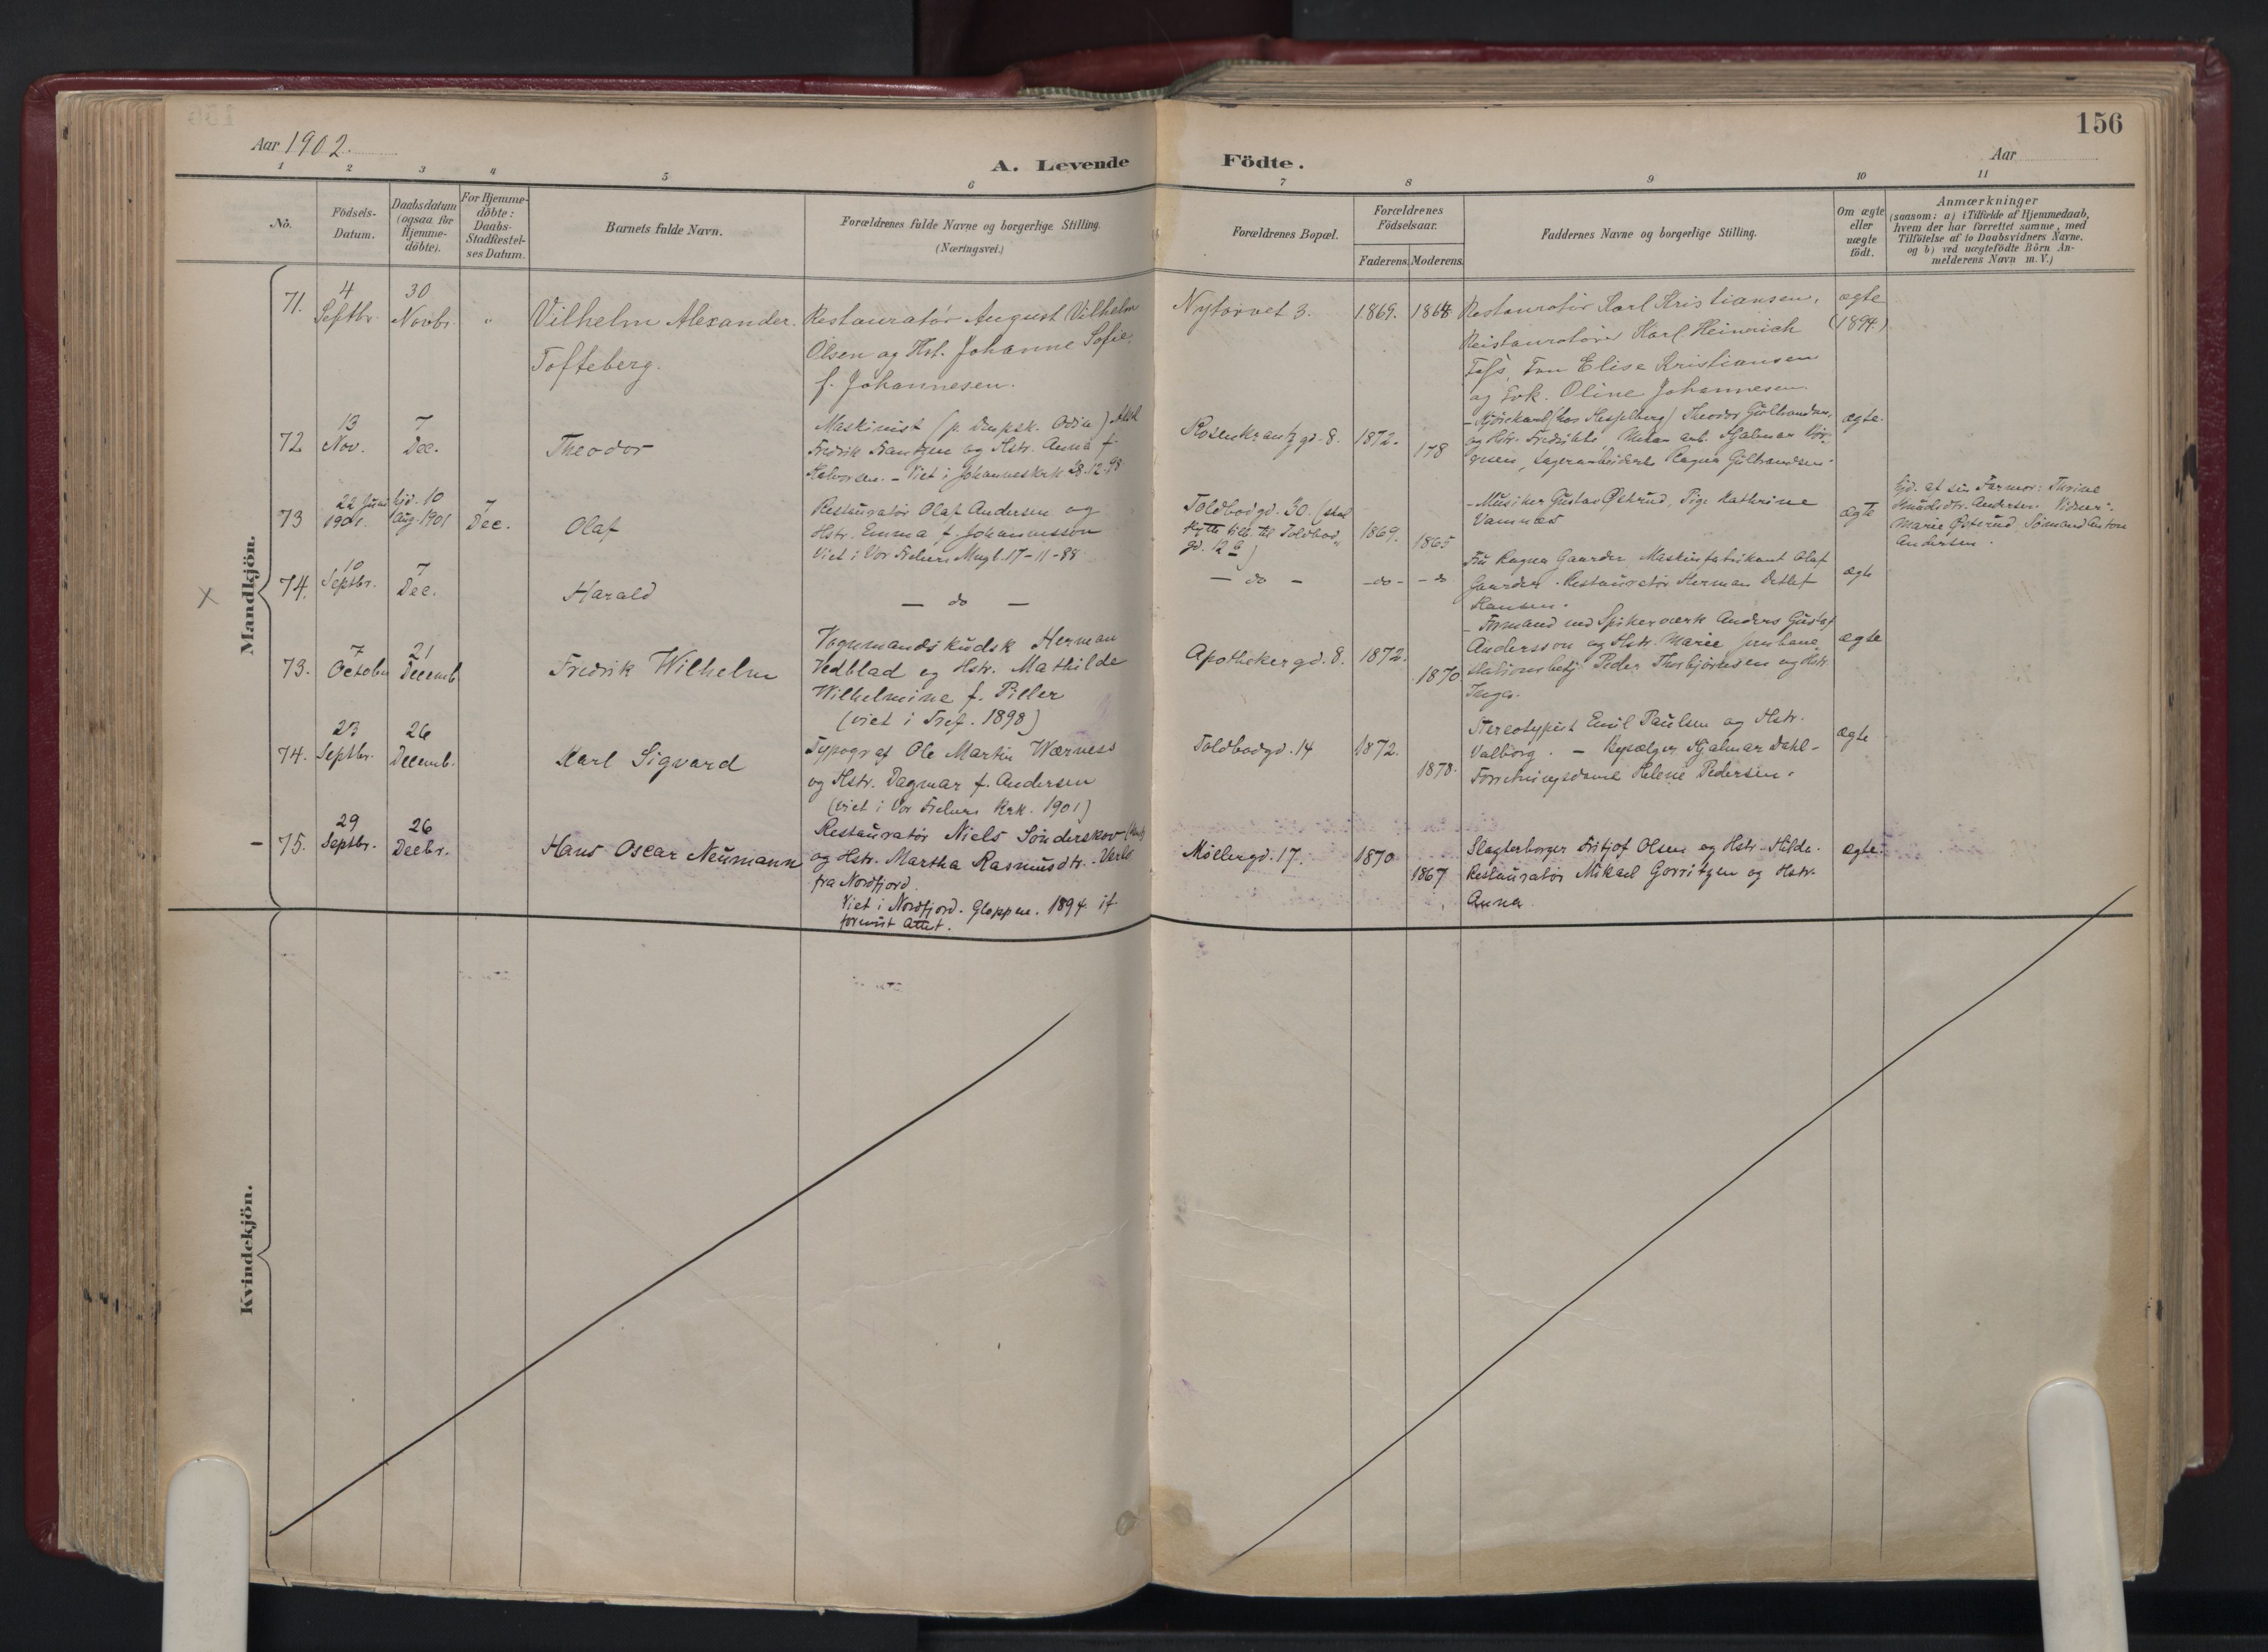 156
Aar 1902.
A. Levende Födte.
Aar
1 2 3 4 5 6 7 8 9 10 11
No.
Födsels-
Datum.
Daabsdatum
(ogsaa for
Hjemme-
döbte).
For Hjemme-
döbte:
Daabs-
Stadfæstel-
ses Datum.
Barnets fulde Navn.
Forældrenes fulde Navne og borgerlige Stilling.
(Næringsvei.)
Forældrenes Bopæl.
Forældrenes
Födselsaar.
Faderens. Moderens.
Faddernes Navne og borgerlige Stilling.
Om ægte
eller
uægte
födt.
Anmærkninger
(saasom: a) i Tilfælde af Hjemmedaab,
hvem der har forrettet samme, med
Tilföielse af to Daabsvidners Navne,
og b) ved uægtefödte Börn An-
melderens Navn m. V.)
Mandkjön.
71.
4
Septbr.
30
Novbr.
"
Vilhelm Alexander
Tofteberg.
Restauratør August Vilhelm
Olsen og Hst. Johanne Sofie
f. Johannesen.
Nytorvet 3.
1869. 1864
Restauratør Karl Kristiansen,
Restauratør Karl Heinrich
Fru Elise Kristiansen
og Frk. Oline Johannesen.
ægte
(1894.)
72
13
Nov.
7
Dec.
Theodor
Maskinist (p. Dmpsk. Odin) Axel
Fredrik Frantzen og Hstr. Anna f.
Halvorsen. - Viet i Johanneskrk 28.12.98
Rosenkrantzgd. 8.
1872. 178
- Kjørekarl (hos Hesselberg) Theodor Gulbrandsen,
og Hstr. Fredrikke, arb. Hjalmar
Lagerarbeiderske Ragna Gulbrandsen.
ægte.
73
22 Juni
1901.
hjd. 10
Aug. 1901
7
Dec.
Olaf
Restauratør Olaf Andersen og
Hstr. Emma f. Johannesson
Viet i Vor Frelsers Mngt. 17-11-88
Toldbodgd. 30. (skal
flytte til Toldbod
gd. 12 b)
1869. 1865
- Musiker Gustav Østrud, Pige Kathrine
Vamnes
ægte
hjd. af sin Farmor: Thrine
Knudsdtr. Andersen. Vidner:
Marie Østerud, Sømand Anton
Andersen.
X
74.
10
Septbr.
7
Dec.
Harald
- do -
- do - - do - - do
Fru Ragna Gaarder, Maskinfabrikant Olaf
Gaarder. Restauratør Herman Detlef
Hansen.
ægte
73.
7
October
21
Decemb
Fredrik Wilhelm
Vognmandskudsk Herman
Vedblad og Hstr. Mathilde
Wilhelmine f. Piller
(viet i Tref. 1898)
Apothekergd. 8.
1872. 1870
- Formand ved Spikerværk Anders Gustaf
Andersson og Hstr. Marie
Stationsbetj. Peder Thorbjørnsen og Hstr.
Inga.
ægte
74.
23
Septbr.
26
Decemb.
Karl Sigvard
Typograf Ole Martin Wærness
og Hstr. Dagmar f. Andersen
(viet i Vor Frelsers Krk. 1901)
Toldbodgd. 14
1872. 1878.
Stereotypist Emil Paulsen og Hstr.
Valborg. - Bysælger Hjalmar Dahl -
Forretningsdame Helene Pedersen.
ægte
- 75.
29
Septbr.
26
Decbr.
Hans Oscar Neumann
Restauratør Niels Sønderskov
og Hstr. Martha Rasmusdtr.
fra Nordfjord.
Viet i Nordfjord. Gloppen. 1894 if.
forevist Attest.
Møllergd. 17.
1870 1867
Slagterborger Fritjof Olsen og Hstr. Hilda.
Restauratør Mikael Gorritzen og Hstr.
Anna.
ægte.
Kvindekjön.